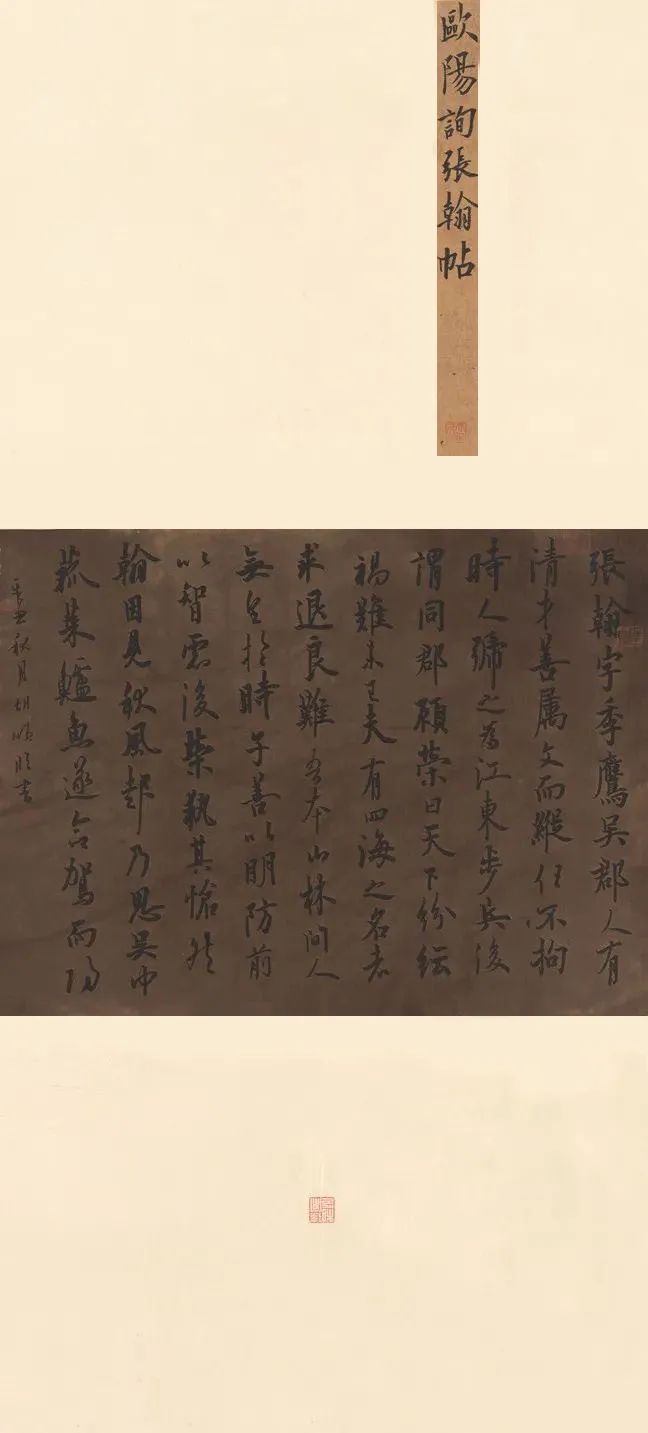 歐陽詢張翰帖
張翰字季鷹吳郡人有
清才善属文而縱任不拘
時人號之為江東步兵後
謂同郡顧榮曰天下紛紜
禍難未已夫有四海之名者
求退良難吾本山林間人
無望於時子善以明防前
以智慮後榮執其愴然
翰因見秋風起乃思吳中
菰菜鱸魚遂命駕而歸
辛丑秋月胡臨書